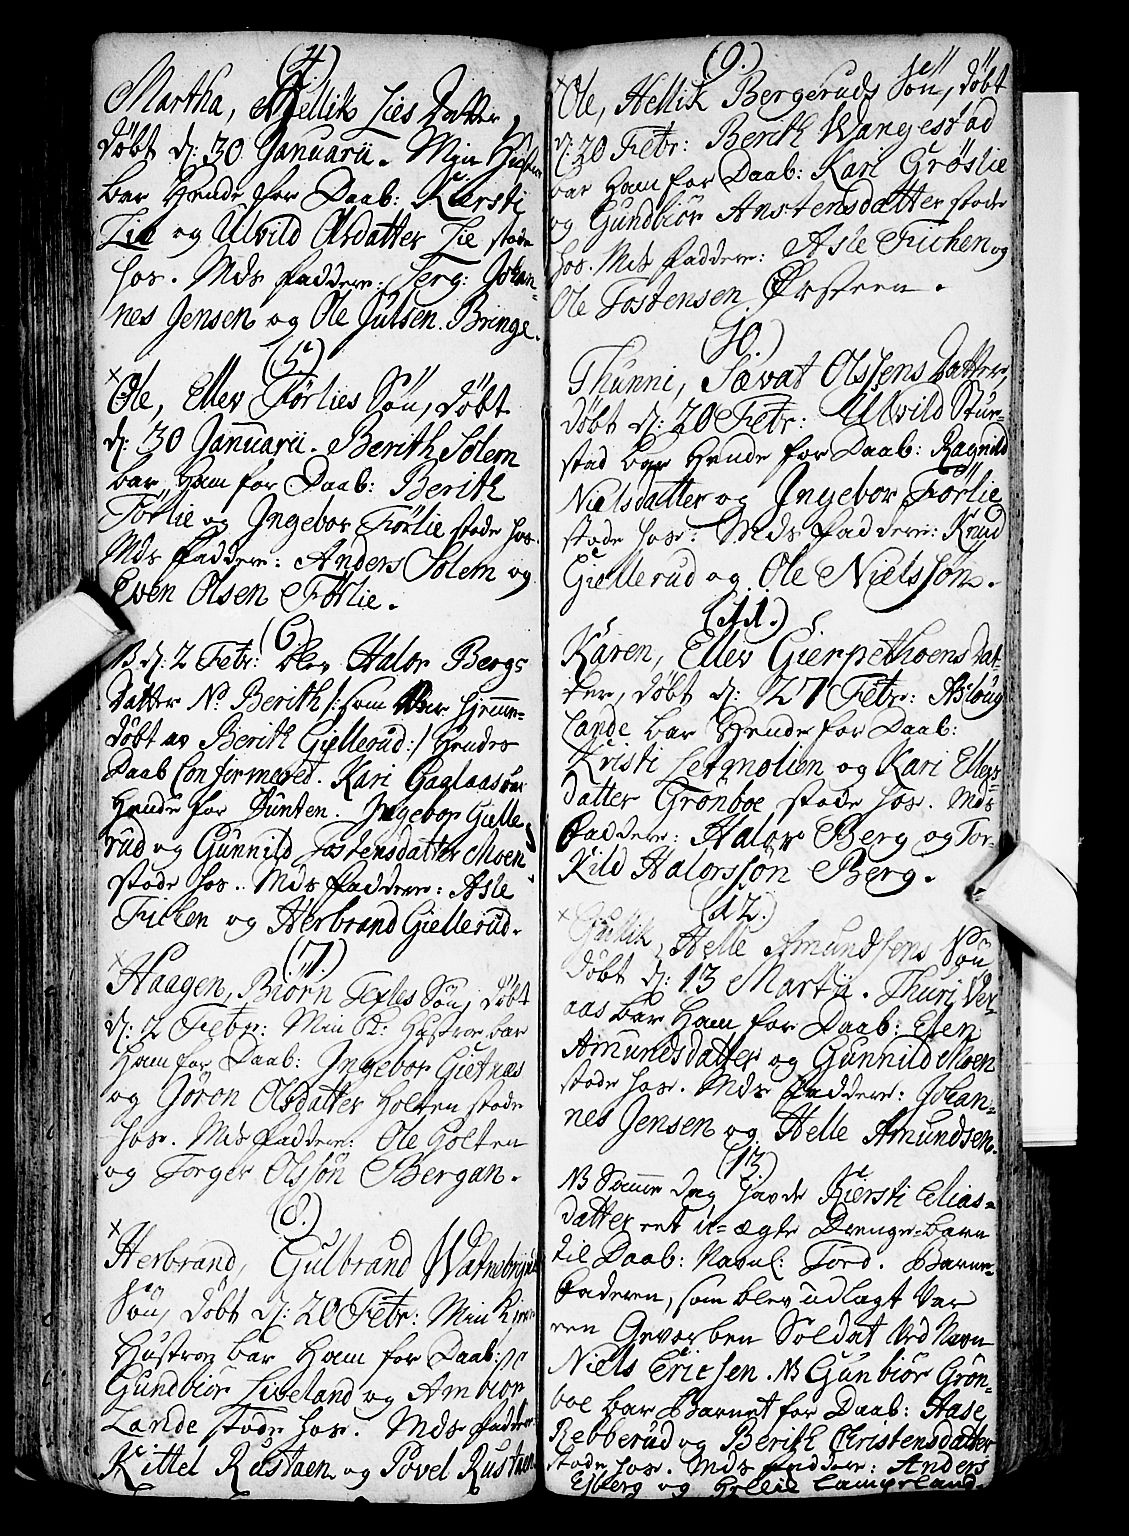 (4.)
Martha, Hellik Lies Datter,
døbt d: 30 Januarii. Min Hustru
bar Hende for Daab: Kiersti
Lie og Ulvild Olsdatter Lie stode
hos. Mds faddere: Serg: Johan-
nes Jensen og Ole Julsen Bringe.
(5.)
× Ole, Ellev Førlies Søn, døbt
d: 30 Januarii. Berith Solem
bar Ham for Daab: Berith
Førlie og Ingebor Førlie stode hos.
Mds faddere: Anders Solem og
Even Olsen Førlie.
(6.)
NB d: 2 Febr: blev Halor Bergs
Datter N: Berith /: som var hjemme-
døbt av Berith Giellerud :/ Hendes
Daab Confirmeret. Kari Gaglaas bar
Hende for Funten. Ingebor Gielle-
rud og Gunnild Tostensdatter Moen
stode hos. Mds faddere: Asle
Ficken og Herbrand Giellerud.
(7.)
× Haagen, Biørn Søn, døbt
d: 2 Febr: Min K: Hustroe bar
Ham for Daab: Ingebor Gietnæs
og Jøron Olsdatter Holten stode
hos. Mds faddere: Ole Holten
og Torger Olssøn Bergan.
(8.)
× Herbrand, Gulbrand
Søn, døbt d: 20 Febr: Min Kjere
Hustroe bar Ham for Daab:
Gundbiør Liveland og Ambiør
Lande stode hos. Mds faddere:
Kittel Rustaen og Povel Rustaen
(9.)
× Ole, Hellik Bergeruds Søn, døbt
d: 20 Febr: Berith Wangestad
bar Ham for Daab: Kari Grøslie
og Gundbiør Anstensdatter stode
hos. Mds faddere: Asle Ficken og
Ole Tostensen Ørsteen.
(10.)
Thunni, Sævat Olssens Datter,
døbt d: 20 Febr: Ulvild Stuve-
stad bar Hende for Daab: Ragnild
Nielsdatter og Ingebor Førlie
stode hos: Mds faddere: Knud
Giellerud og Ole Nielssøn.
(11.)
Karen, Ellev Gierpethoens Dat-
ter, døbt d: 27 Febr: Asloug
Lande bar Hende for Daab:
Kristi Letmolien og Kari Ellevs-
datter Grønboe stode hos. Mds
faddere: Halor Berg og Tor-
kild Halorssøn Berg.
(12.)
× Gullik, Helle Amundsens Søn
døbt d: 13 Martii. Thuri Ver-
aas bar Ham for Daab: Elen
Amundsdatter og Gunnild Moen
stode hos. Mds faddere: Johan-
nes Jensen og Helle Amundsen.
(13.)
NB Samme Dag havde Kiersti Elias-
datter eet u-ægte Drenge-barn
til Daab: Navnl: Tord. Barne-
faderen, som blev udlagt var
een Gevorben Soldat ved Navn
Niels Ericsen. NB Gunbiør Grøn-
boe bar Barnet for Daab: Aase
Rebberud og Berith Christensdatter
stode hos. Mds faddere: Anders
Esberg og Hellik Lamperland.